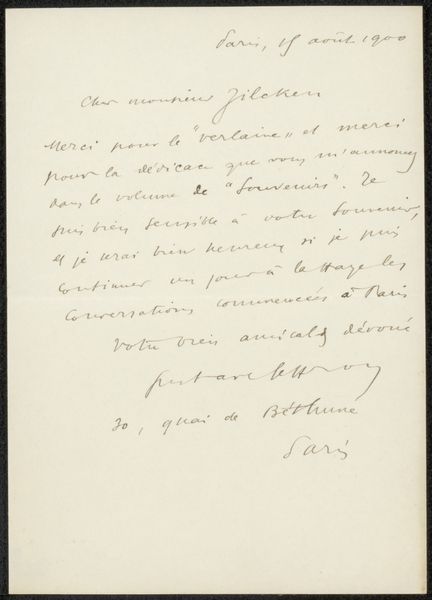 Paris, 15 août 1900
Cher monsieur Zilcken
Merci pour le "Verlaine" et merci
pour la dédicace que vous m'annoncez
dans le volume de "Souvenirs". Je
suis bien sensible à votre souvenir,
et je serai bien heureux si je puis
continuer un jour à la Haye les
conversations commencées à Paris
Votre bien amicalt dévoué
Gustave Geffroy
30, quai de Béthune
Paris